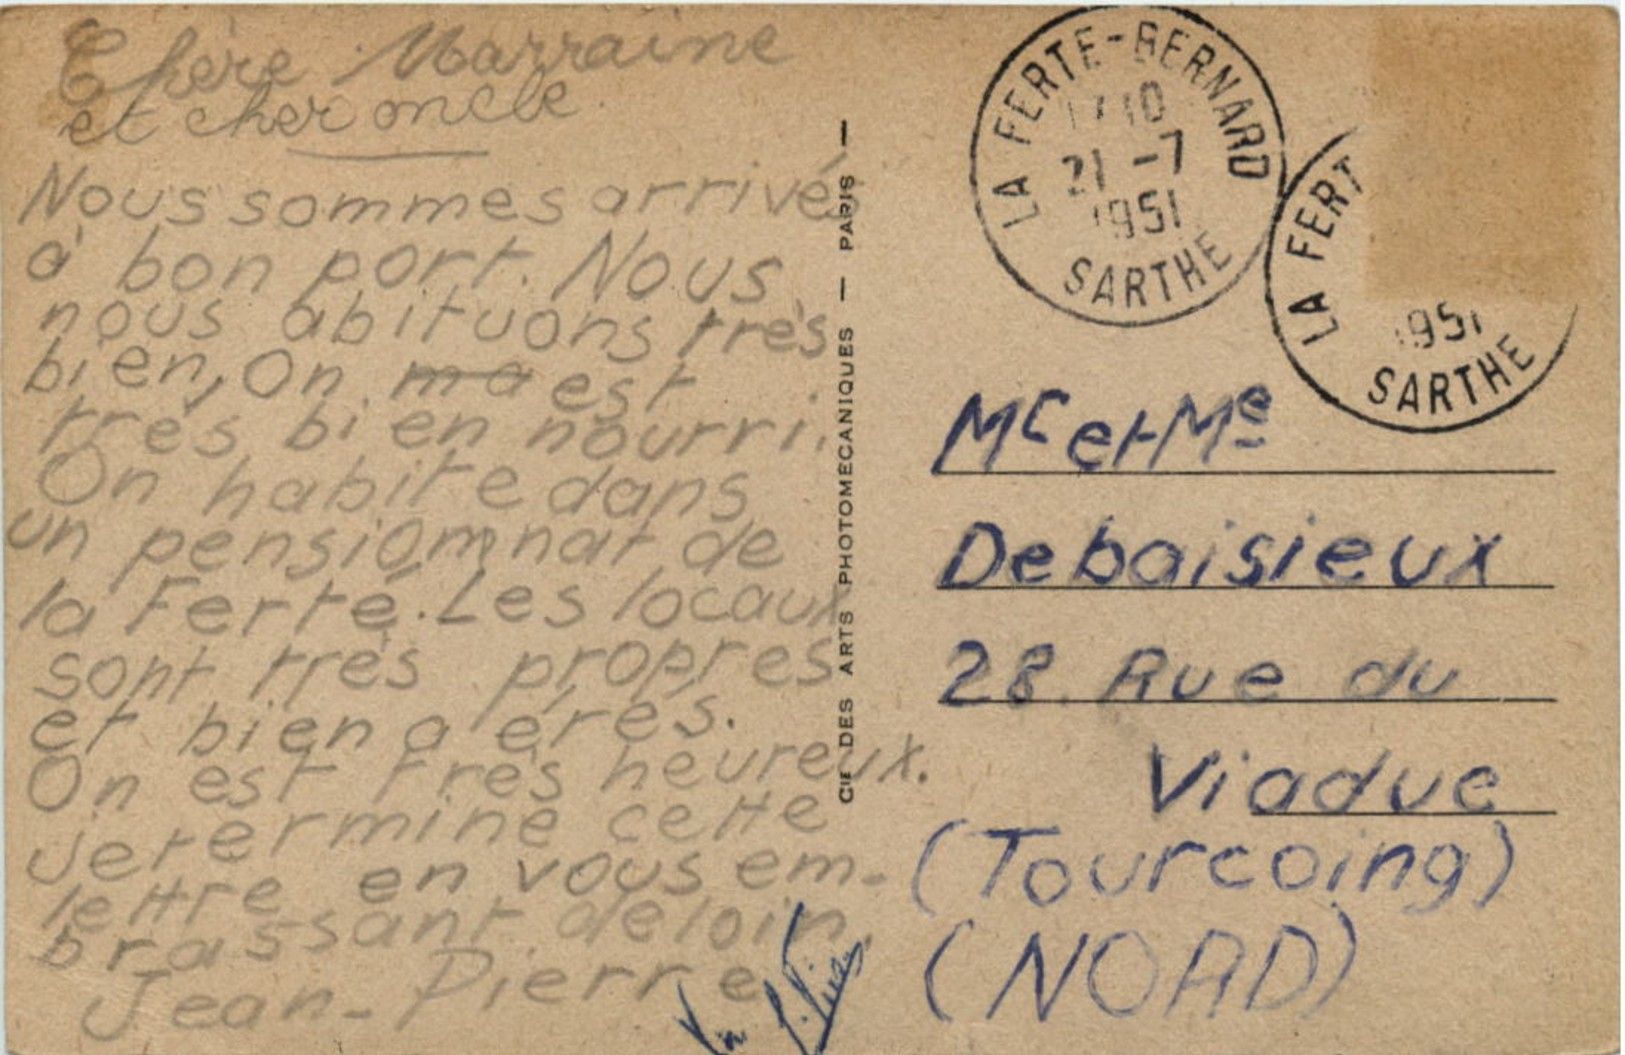 Chère Marraine
et cher oncle
Nous sommes arrivés
à bon port. Nous
nous abituons très
bien, On ma est
très bien nourri.
On habite dans
un pensiomnat de
la Ferté. Les locaux
sont très propres
et bien a érés.
On est très heureux.
je termine cette
lettre en vous em-
brassant de loin.
Jean-Pierre
CIE DES ARTS PHOTOMÉCANIQUES — PARIS —
LA FERTE-BERNARD
17 10
21 -7
1951
SARTHE
LA FERT
1951
SARTHE
Mr et Me
Debaisieux
28 Rue du
Viaduc
(Tourcoing)
(NORD)